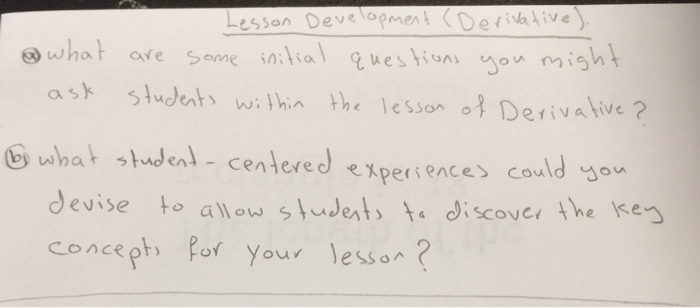 Lesson Development (Derivative).
ⓐ what are some initial questions you might
ask students within the lesson of Derivative?
ⓑ what student-centered experiences could you
devise to allow students to discover the key
concepts for your lesson?